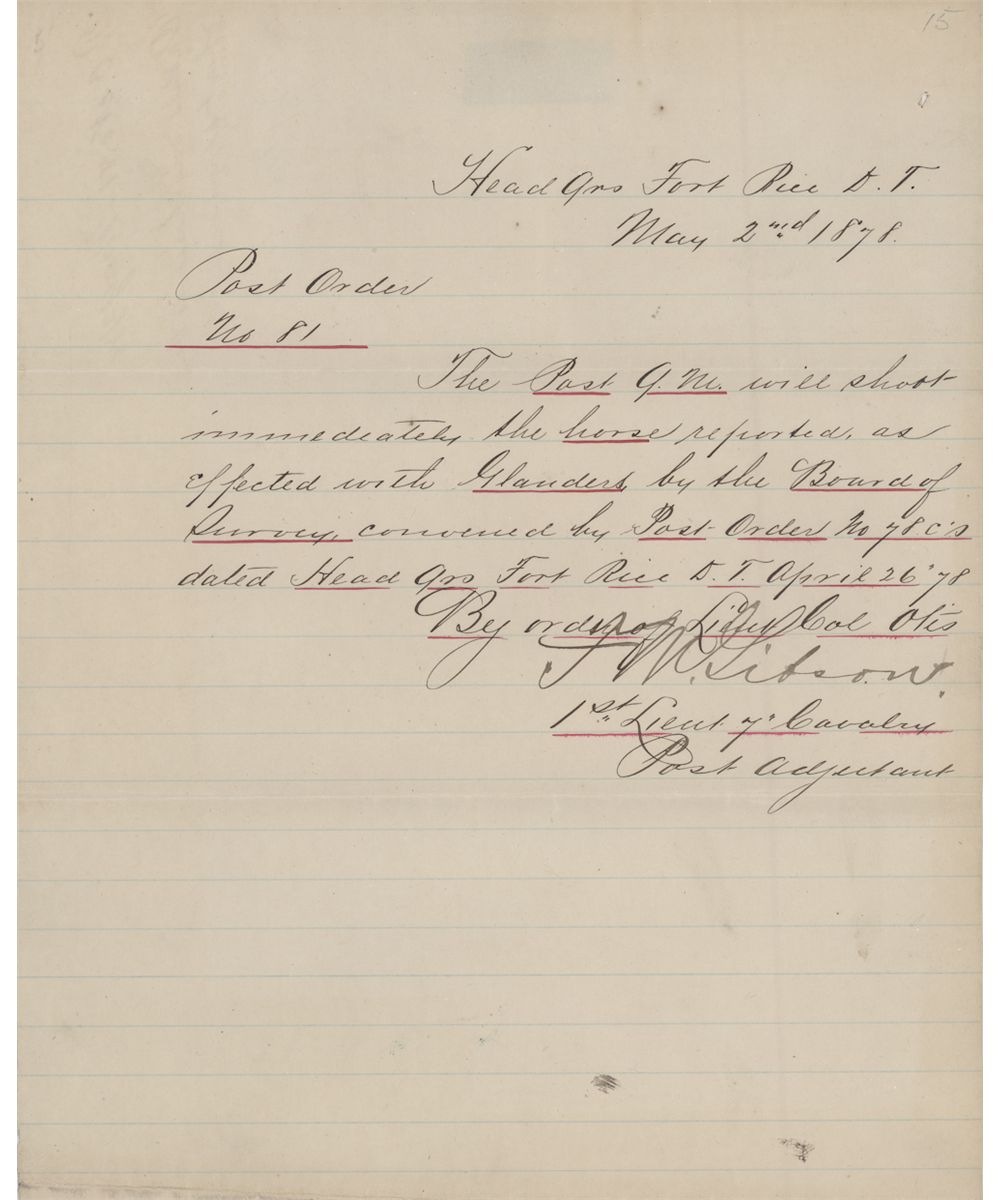 15
Head Qrs Fort Rice D. T.
May 2nd 1878.
Post Order
No 81
The Post Q. M. will shoot
immediately the horse reported, as
effected with Glanders, by the Board of
Survey, convened by Post Order No 78. c's
dated Head Qrs Fort Rice D. T. April 26" 78
By order of Lieut Col Otis
F M. Gibson.
1st Lieut 7" Cavalry
Post Adjutant